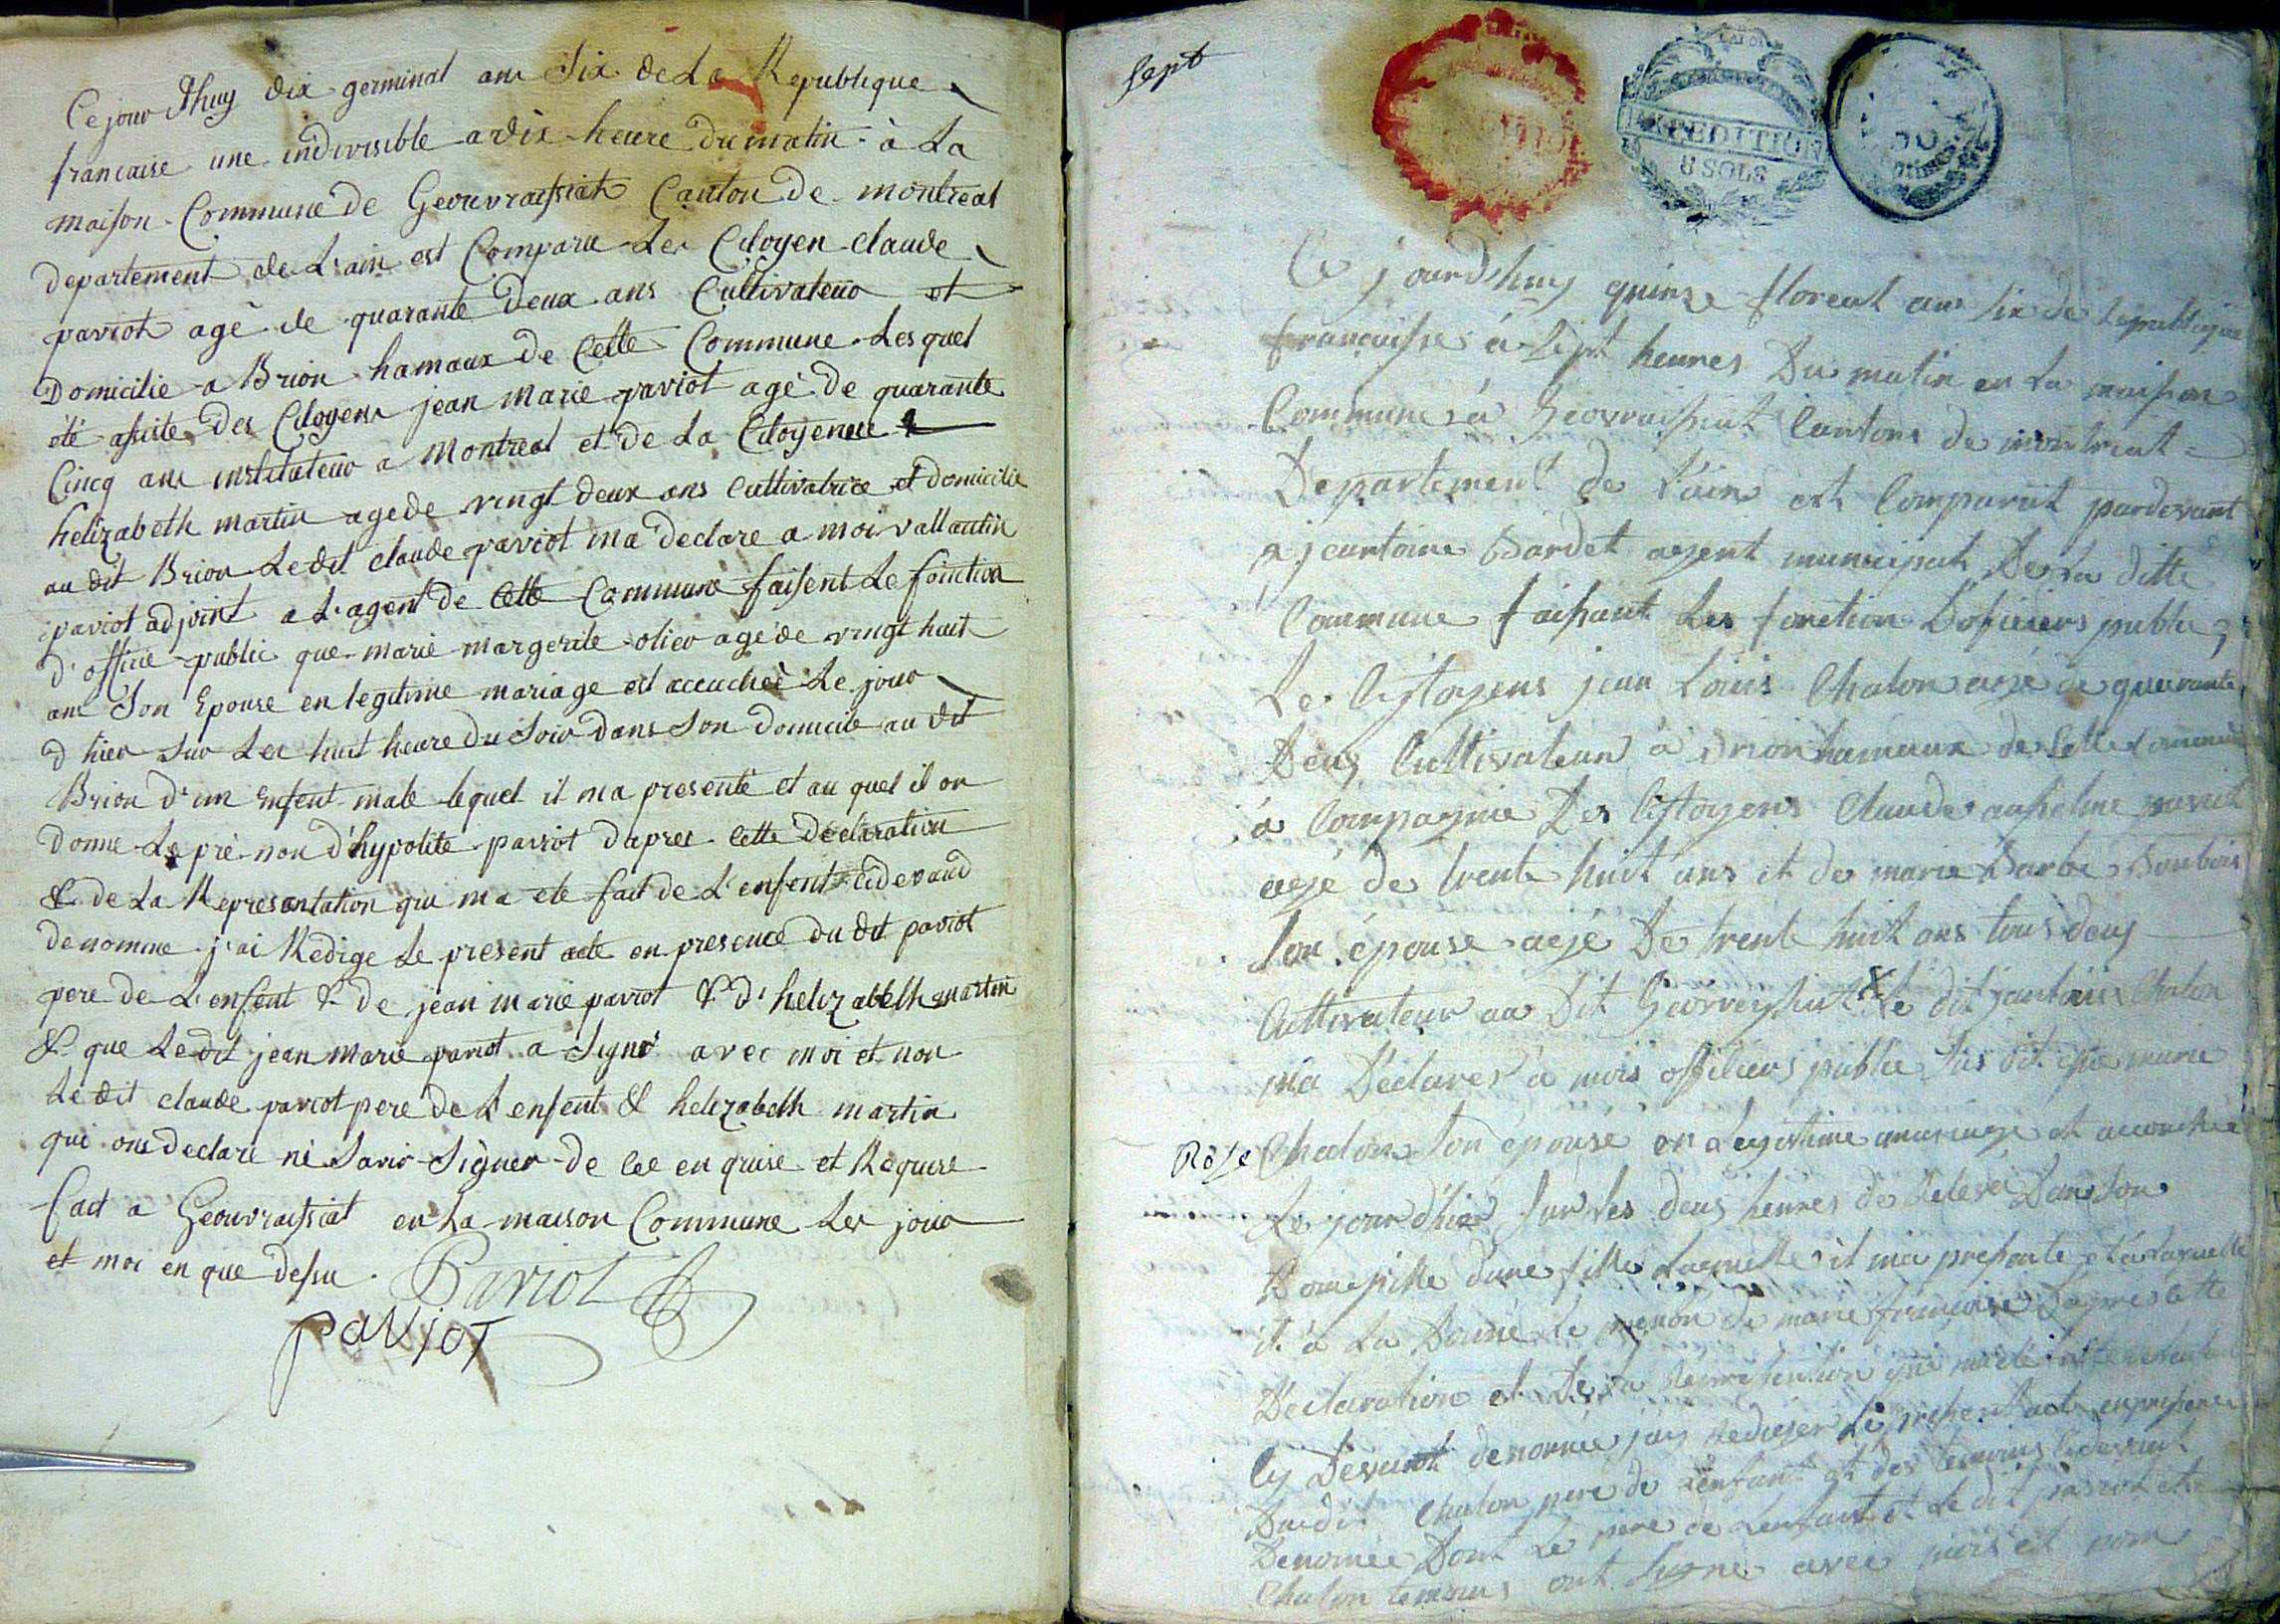 Ce jour dhuy dix germinal ans Six de La Republique
francaise une indivisible a dix heure du matin à La
maison Commune de Geouvraissiat Canton de montreal
departement de L'ain est Comparu Les Citoyen claude
paviot agé de quarante deux ans Cultivateur et
Domicilié a Brion hamaux de Cette Commune Les quel
été assisté des Citoyens jean marie paviot agé de quarante
Cincq ans instituteur a Montreal et de La Citoyenne
helizabeth martin age de vingt deux ans Cultivatrice et domicilie
au dit Brion Le dit claude paviot ma declaré a moi vallantin
paviot adjoint a L'agent de Cette Commune faisent Le fonction
d'officié public que marie margerite olier agé de vingt huit
ans Son Epouse en legitime mariage est accuchéé Le jour
d hier Sur Les huit heure du Soir dans Son domicile au dit
Brion d'un enfent male lequel il ma presenté et au quel il on
donne Le pré non d'hypolite paviot dapres cette declaration
& de La Representation qui ma eté fait de L'enfent cidevand
denommé j'ai Redigé Le present acte en presence du dit paviot
pere de L'enfent & de jean marie paviot & d'helizabelh martin
& que Le dit jean marie paviot a Signé avec moi et non
Le dit claude paviot pere de L'enfent & helizabelh martin
qui ons declaré né Savir Signer de Ce en quise et Requise
fait a Geouvraissiat en La maison Commune Les jour
et moi en que dessu. Paviot
paviot
Sept
EXPEDITION
8 SOLS
Ce jourdhuy quinze floreal ans Six de La republique
francaisse à Sept heures Du matin en La maison
Commune à Geovraissiat Canton de montreal
Departement de L'ain est Comparut pardevant
jeantoine Bardet agent municipal De La ditte
Commune faisant Les fonction D'oficiers public,
Le Citoyens jean Louis Chaton agé de quarante
Deux Cultivateur à Brion hameaux de Cette Commune
à Compagnie Des Citoyens Claude ansselme paviot
agé de trente huit ans et de marie Barbe
Son épouse agé De trente huit ans tous deux
Cultivateur au Dit Le dit Chaton
ma Déclarer à mois officiers public Sus dit que marie
Rose Chaton Son épouse en Legistime mariage est accouchée
Le jour d'hier Sur Les deux heures de Relevé Dans Son
Domicille d'une fille Laquelle il ma presente et à Laquelle
il à La Donné Le prenon de marie francoise D'apres Cette
Déclaration et De La
Cy Devant denomée jay Rediger Le present acte en presence
Du dit Chaton pere de L'enfant et des temoins Cy devant
Denomée Dont Le pere de L'enfant et Le dit paviot et
Chaton temoins ont Signé avec mois et nom